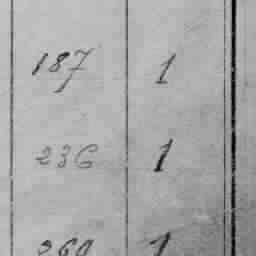 187 1
236 1
269 1